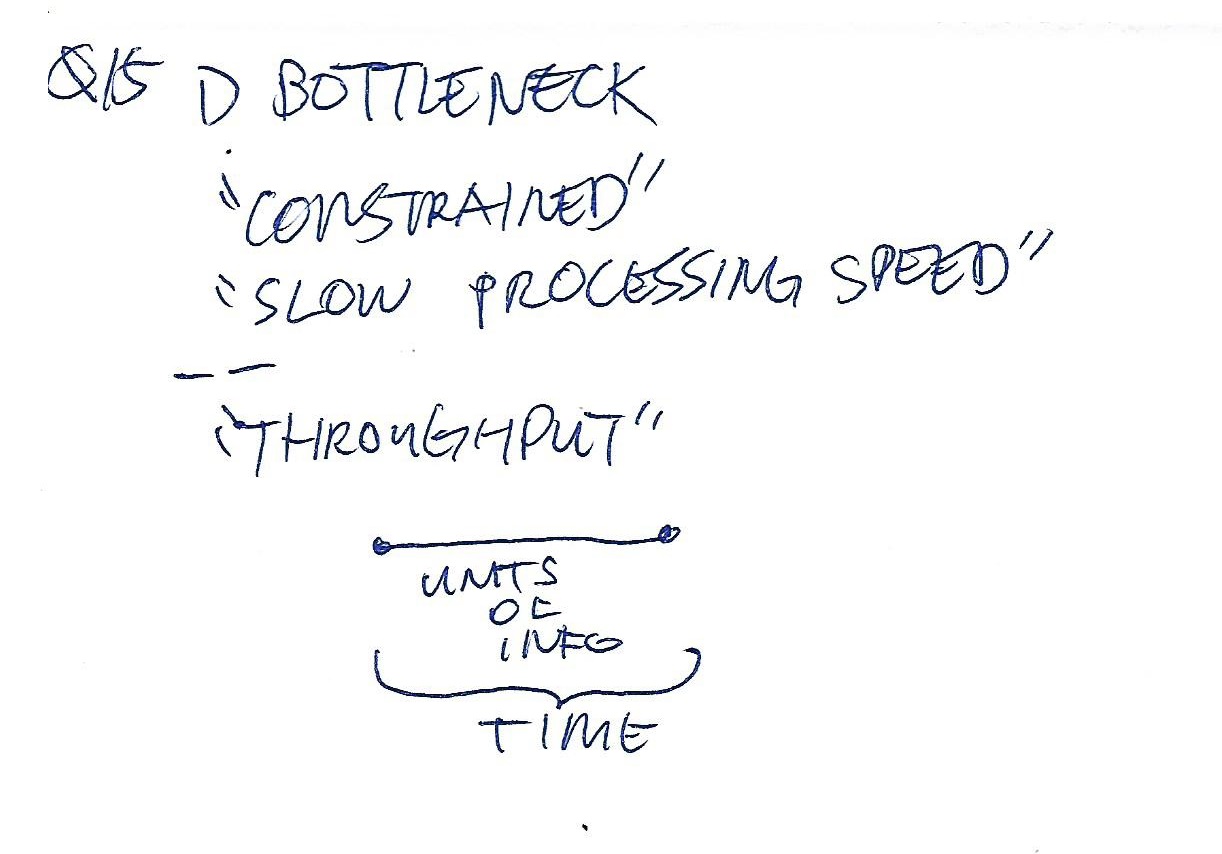 Q15 D BOTTLENECK
"CONSTRAINED"
"SLOW PROCESSING SPEED"
--
"THROUGHPUT"
UNITS
OF
INFO
TIME